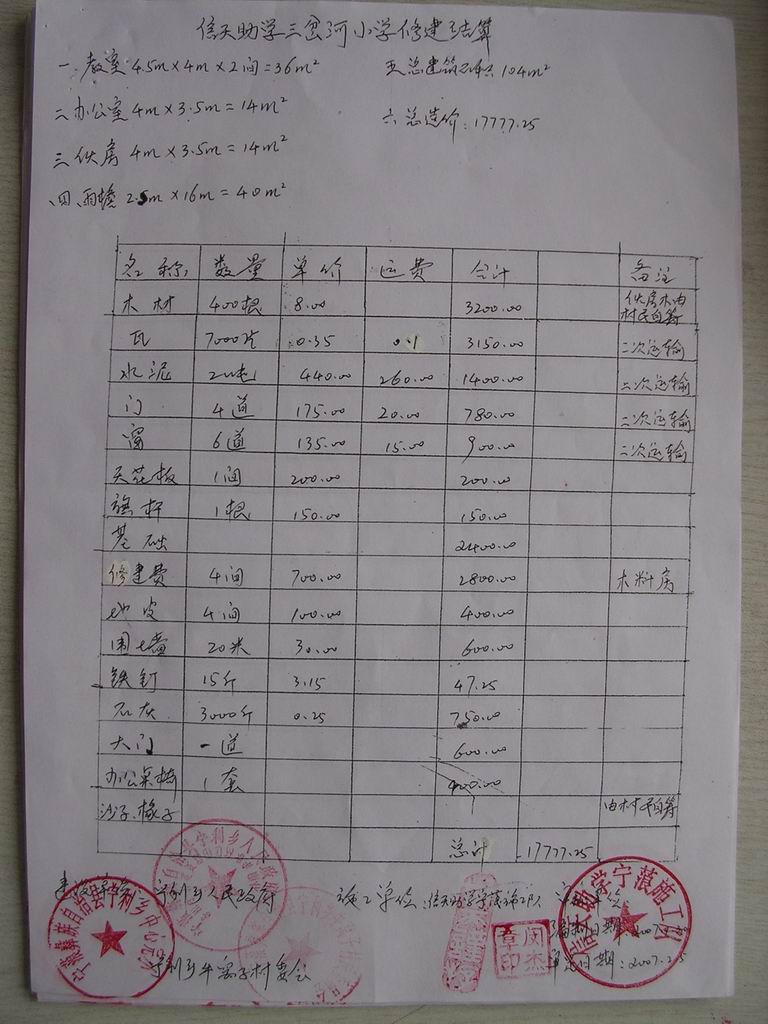 信天助学三岔河小学修建结算
一.教室4.5m×4m×2间=36m² 五总建筑面积:104m²
二办公室4m×3.5m=14m² 六总造价:17777.25
三伙房4m×3.5m=14m²
四.雨檐2.5m×16m=40m²
名称 数量 单价 运费 合计 备注
木材 400根 8.00 3200.00 伙房木由村民自筹
瓦 7000片 0.35 0.1 3150.00 二次运输
水泥 2吨 440.00 260.00 1400.00 二次运输
门 4道 175.00 20.00 780.00 二次运输
窗 6道 135.00 15.00 900.00 二次运输
天花板 1间 200.00 200.00
旗杆 1根 150.00 150.00
基础 2400.00
修建费 4间 700.00 2800.00 木料房
地皮 4间 100.00 400.00
围墙 20米 30.00 600.00
铁钉 15斤 3.15 47.25
石灰 3000斤 0.25 750.00
大门 一道 600.00
办公桌椅 1套 400.00
沙子.椽子 由村民自筹
总计 17777.25
宁利乡人民政府 施工单位:信天助学宁蒗施工队
日期:2007.
宁利乡牛窝子村委会 日期:2007.2.5
宁蒗彝族自治县宁利乡中心完小
闵杰章印
信天助学宁蒗施工队